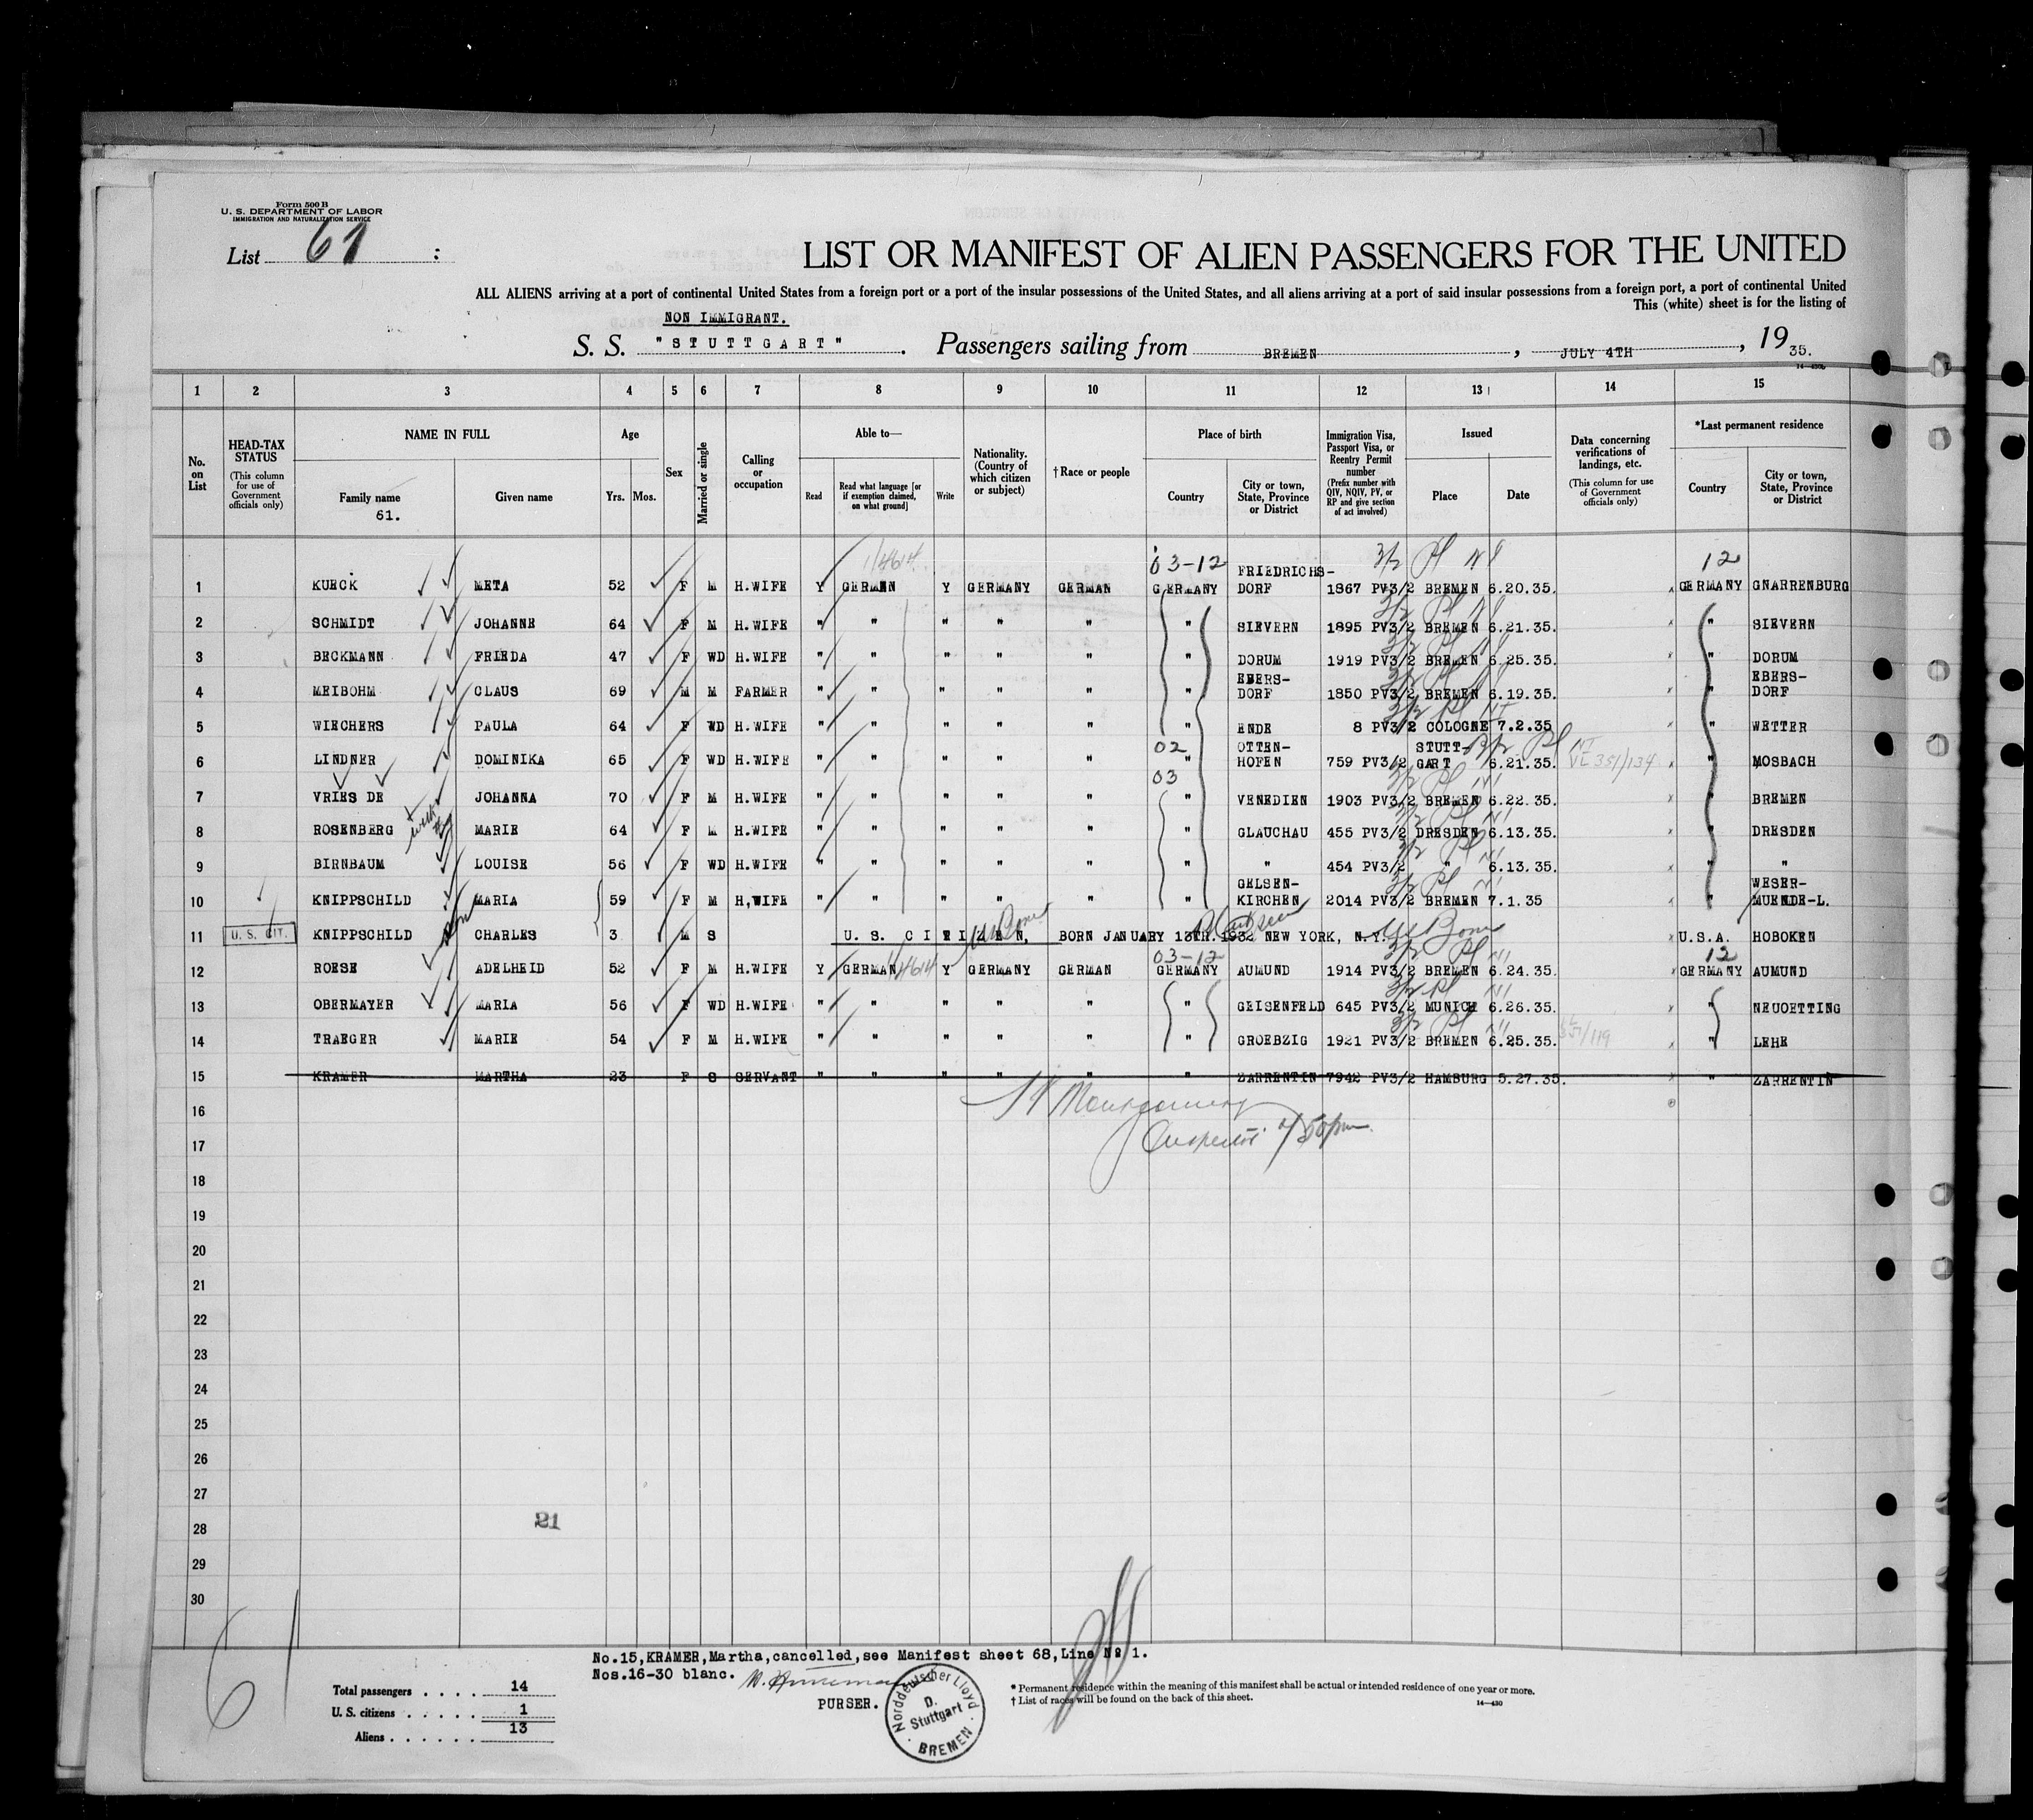 Form 500 B
U. S. DEPARTMENT OF LABOR
IMMIGRATION AND NATURALIZATION SERVICE
List 61 :
LIST OR MANIFEST OF ALIEN PASSENGERS FOR THE UNITED
ALL ALIENS arriving at a port of continental United States from a foreign port or a port of the insular possessions of the United States, and all aliens arriving at a port of said insular possessions from a foreign port, a port of continental United
This (white) sheet is for the listing of
NON IMMIGRANT.
S. S. "STUTTGART" . Passengers sailing from BREMEN , JULY 4TH , 19 35.
1 2 3 4 5 6 7 8 9 10 11 12 13 14 15
No. on List
HEAD-TAX STATUS (This column for use of Government officials only)
NAME IN FULL
Family name 61.
Given name
Age Yrs. Mos.
Sex
Married or single
Calling or occupation
Able to—
Read
Read what language [or if exemption claimed, on what ground]
Write
Nationality. (Country of which citizen or subject)
†Race or people
Place of birth
Country
City or town, State, Province or District
Immigration Visa, Passport Visa, or Reentry Permit number (Prefix number with QIV, NQIV, PV, or RP and give section of act involved)
Issued
Place
Date
Data concerning verifications of landings, etc. (This column for use of Government officials only)
*Last permanent residence
Country
City or town, State, Province or District
03-12 3/2 Pl 12
1 KUECK META 52 F M H.WIFE Y GERMAN Y GERMANY GERMAN GERMANY FRIEDRICHS-DORF 1867 PV3/2 BREMEN 6.20.35. GERMANY GNARRENBURG
2 SCHMIDT JOHANNE 64 F M H.WIFE " " " " " " SIEVERN 1895 PV3/2 BREMEN 6.21.35. " SIEVERN
3 BECKMANN FRIEDA 47 F WD H.WIFE " " " " " " DORUM 1919 PV3/2 BREMEN 6.25.35. " DORUM
4 MEIBOHM CLAUS 69 M M FARMER " " " " " " EBERS-DORF 1850 PV3/2 BREMEN 6.19.35. " EBERS-DORF
5 WIECHERS PAULA 64 F WD H.WIFE " " " " " " ENDE 8 PV3/2 COLOGNE 7.2.35 " WETTER
02
6 LINDNER DOMINIKA 65 F WD H.WIFE " " " " " " OTTEN-HOFEN 759 PV3/2 STUTT-GART 6.21.35. " MOSBACH
03
7 VRIES DE JOHANNA 70 F M H.WIFE " " " " " " VENEDIEN 1903 PV3/2 BREMEN 6.22.35. " BREMEN
8 ROSENBERG MARIE 64 F M H.WIFE " " " " " " GLAUCHAU 455 PV3/2 DRESDEN 6.13.35. " DRESDEN
9 BIRNBAUM LOUISE 56 F WD H.WIFE " " " " " " " 454 PV3/2 " 6.13.35. " "
10 KNIPPSCHILD MARIA 59 F M H,WIFE " " " " " " GELSEN-KIRCHEN 2014 PV3/2 BREMEN 7.1.35 " WESER-MUENDE-L.
11 U. S. CIT. KNIPPSCHILD CHARLES 3 M S U.S. CITIZEN, BORN JANUARY 13TH.1932 NEW YORK, N.Y. U.S.A. HOBOKEN
03-12 12
12 ROESE ADELHEID 52 F M H.WIFE Y GERMAN Y GERMANY GERMAN GERMANY AUMUND 1914 PV3/2 BREMEN 6.24.35. GERMANY AUMUND
13 OBERMAYER MARIA 56 F WD H.WIFE " " " " " " GEISENFELD 645 PV3/2 MUNICH 6.26.35. " NEUOETTING
14 TRAEGER MARIE 54 F M H.WIFE " " " " " " GROEBZIG 1921 PV3/2 BREMEN 6.25.35. " LEHE
15 KRAMER MARTHA 23 F S SERVANT " " " " " " ZARRENTIN 7942 PV3/2 HAMBURG 5.27.35. " ZARRENTIN
16 Montgomery
17 Inspector
18
19
20
21
22
23
24
25
26
27
28 21
29
30
No.15,KRAMER,Martha,cancelled,see Manifest sheet 68,Line № 1.
Nos.16-30 blanc.
PURSER.
Norddeutscher Lloyd
D. Stuttgart
BREMEN
Total passengers . . . . 14
U. S. citizens . . . . . 1
Aliens . . . . . . 13
* Permanent residence within the meaning of this manifest shall be actual or intended residence of one year or more.
† List of races will be found on the back of this sheet.
14—430
61